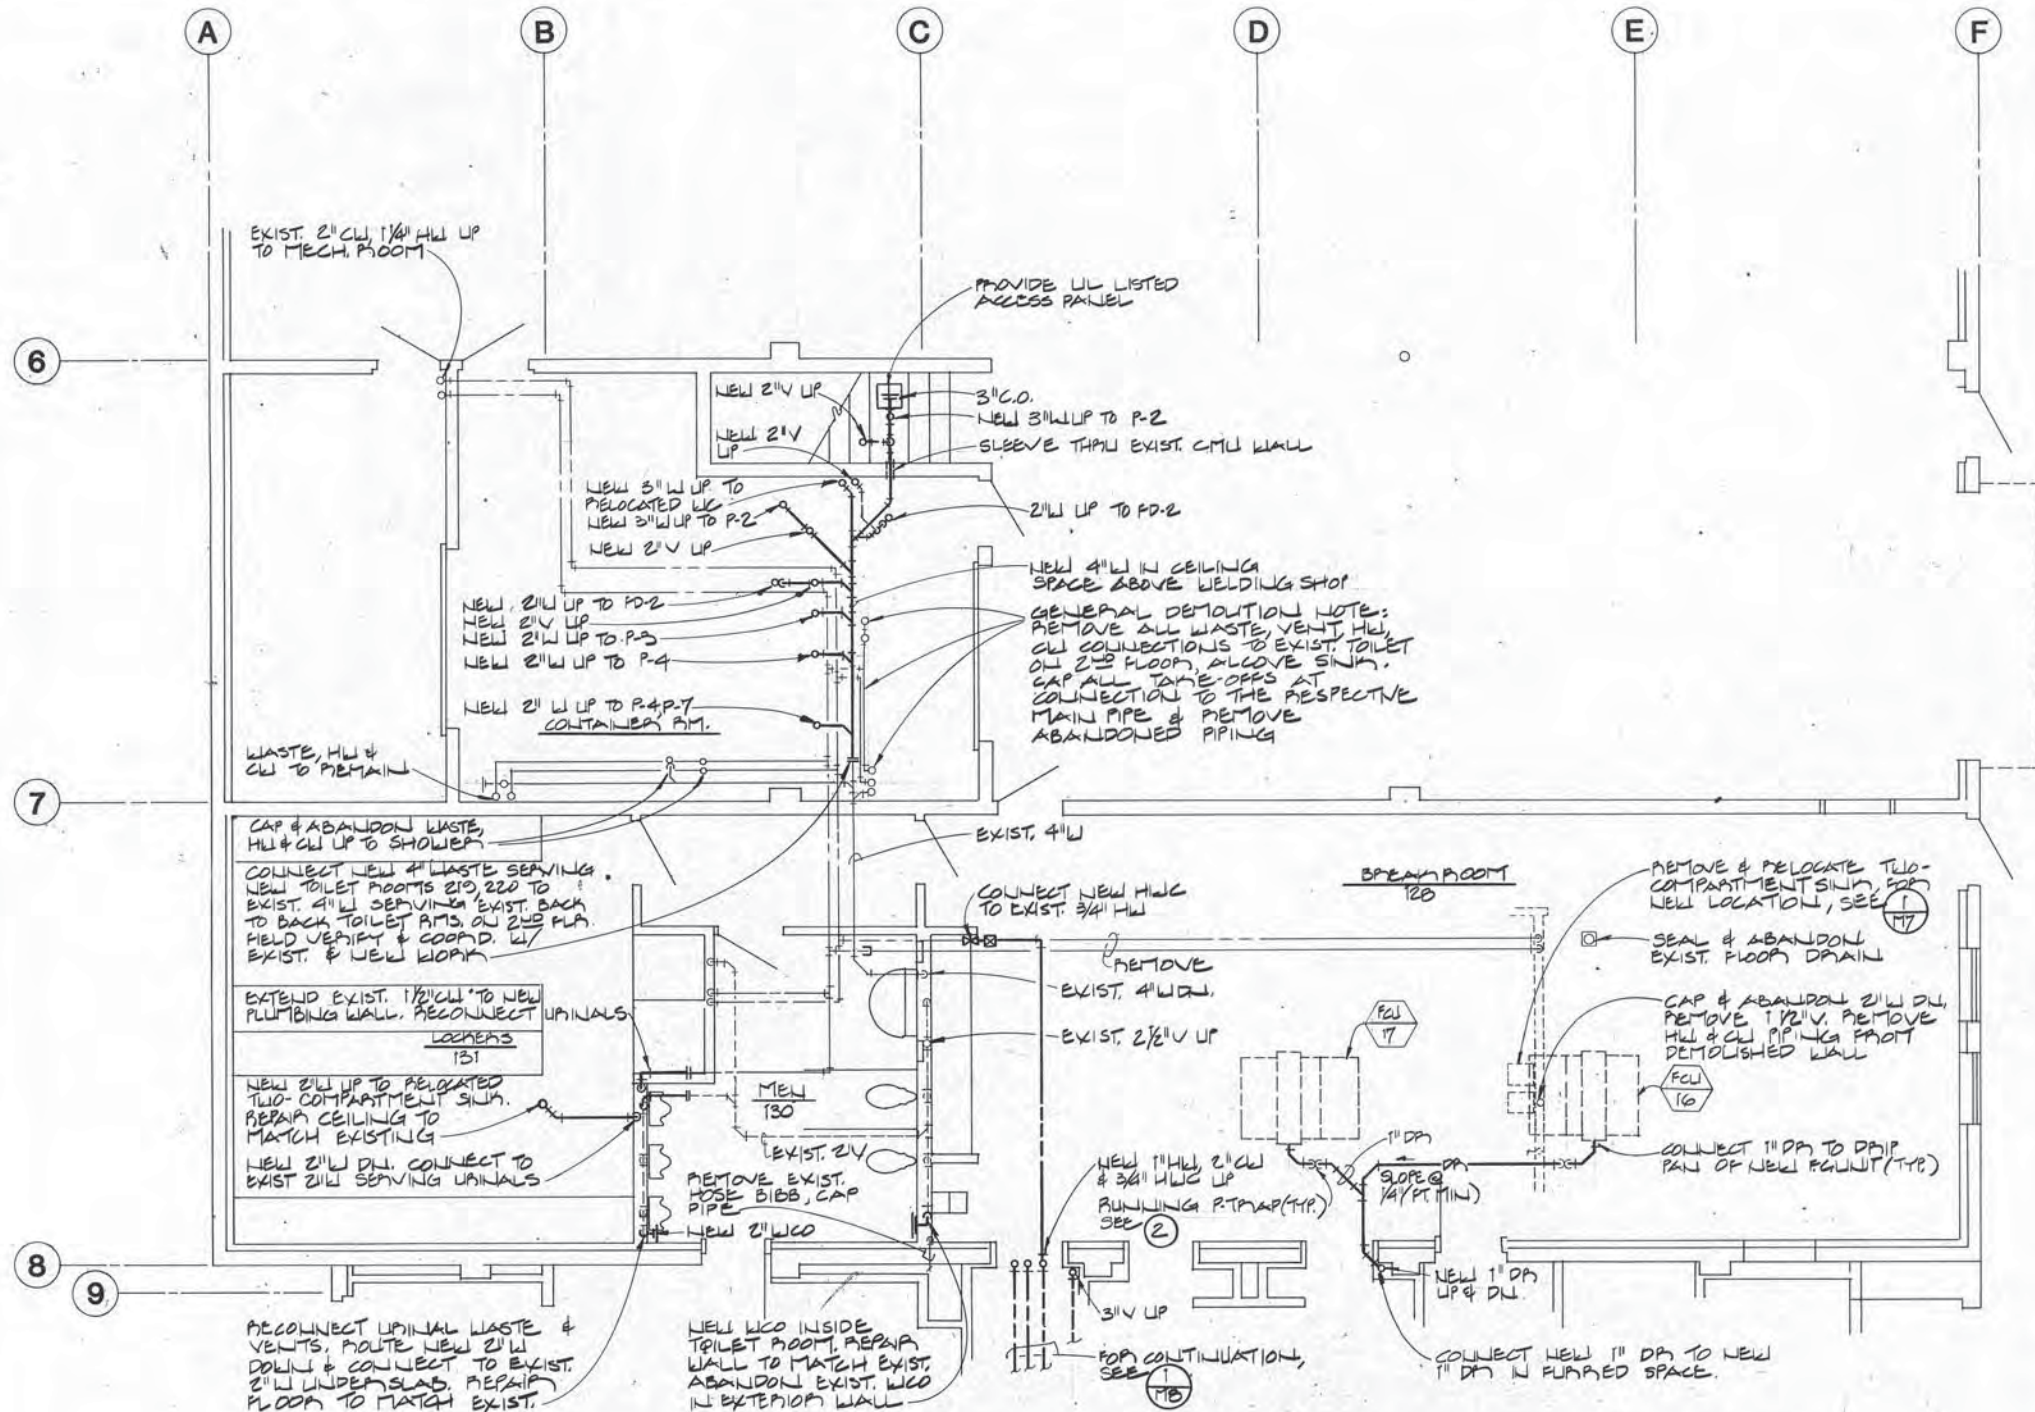 A
B
C
D
E
F
EXIST. 2" CW, 1 1/4" HW UP
TO MECH. ROOM
PROVIDE UL LISTED
ACCESS PANEL
6
NEW 2"V UP
3" C.O.
NEW 3"W UP TO P-2
NEW 2"V
UP
SLEEVE THRU EXIST. CMU WALL
NEW 3"W UP TO
RELOCATED WC
NEW 3"W UP TO P-2
NEW 2"V UP
2"W UP TO FD-2
NEW 4"W IN CEILING
SPACE ABOVE WELDING SHOP
NEW 2"W UP TO FD-2
NEW 2"V UP
NEW 2"W UP TO P-3
NEW 2"W UP TO P-4
NEW 2" W UP TO P-4, P-7
CONTAINER RM.
GENERAL DEMOLITION NOTE:
REMOVE ALL WASTE, VENT, HW,
CW CONNECTIONS TO EXIST. TOILET
ON 2ND FLOOR, ALCOVE SINK.
CAP ALL TAKE-OFFS AT
CONNECTION TO THE RESPECTIVE
MAIN PIPE & REMOVE
ABANDONED PIPING
WASTE, HW &
CW TO REMAIN
7
CAP & ABANDON WASTE,
HW & CW UP TO SHOWER
EXIST. 4"W
CONNECT NEW 4" WASTE SERVING
NEW TOILET ROOMS 219, 220 TO
EXIST. 4"W SERVING EXIST. BACK
TO BACK TOILET RMS. ON 2ND FLR.
FIELD VERIFY & COORD. W/
EXIST. & NEW WORK
CONNECT NEW HWC
TO EXIST. 3/4" HW
BREAK ROOM
128
REMOVE & RELOCATE TWO-
COMPARTMENT SINK, FOR
NEW LOCATION, SEE
1
M7
REMOVE
SEAL & ABANDON
EXIST. FLOOR DRAIN
EXIST. 4"W DN.
EXTEND EXIST. 1 1/2" CW TO NEW
PLUMBING WALL. RECONNECT URINALS
LOCKERS
131
EXIST. 2 1/2" V UP
CAP & ABANDON 2"W DN,
REMOVE 1 1/2" V. REMOVE
HW & CW PIPING FROM
DEMOLISHED WALL
FCU
17
FCU
16
NEW 2"W UP TO RELOCATED
TWO-COMPARTMENT SINK.
REPAIR CEILING TO
MATCH EXISTING
MEN
130
NEW 2"W DN. CONNECT TO
EXIST 2"W SERVING URINALS
EXIST. 2"V
REMOVE EXIST.
HOSE BIBB, CAP
PIPE
NEW 2" WCO
NEW 1" HW, 2" CW
& 3/4" HWC UP
RUNNING P-TRAP (TYP.)
SEE 2
1" DR
DR
SLOPE @
1/4"/FT. MIN)
CONNECT 1" DR TO DRIP
PAN OF NEW FCUNIT (TYP.)
8
9
NEW 1" DR
UP & DN.
3"V UP
RECONNECT URINAL WASTE &
VENTS. ROUTE NEW 2"W
DOWN & CONNECT TO EXIST.
2"W UNDERSLAB. REPAIR
FLOOR TO MATCH EXIST.
NEW WCO INSIDE
TOILET ROOM. REPAIR
WALL TO MATCH EXIST.
ABANDON EXIST. WCO
IN EXTERIOR WALL
FOR CONTINUATION,
SEE
1
M8
CONNECT NEW 1" DR TO NEW
1" DR IN FURRED SPACE.